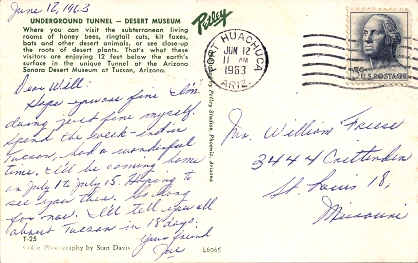 June 12, 1963
UNDERGROUND TUNNEL — DESERT MUSEUM
Where you can visit the subterranean living
rooms of honey bees, ringtail cats, kit foxes,
bats and other desert animals, or see close-up
the roots of desert plants. That's what these
visitors are enjoying 12 feet below the earth's
surface in the unique Tunnel at the Arizona
Sonora Desert Museum at Tucson, Arizona.
Petley
FORT HUACHUCA
JUN 12
11 AM
1963
ARIZ.
5c U.S. POSTAGE
Dear Will:
Hope you are fine. I'm
doing just fine myself.
Spend the week-end in
Tucson, had a wonderful
time. I'll be coming home
on July 12, July 15. Hoping to
see you then. So long
for now. I'll tell you all
about Tucson in 18 days.
Your friend
Joe
Mr. William Freese
3444 Crittenden
St. Louis 18,
Missouri
Petley Studios, Phoenix, Arizona
T-25
Color Photography by Stan Davis
L6065